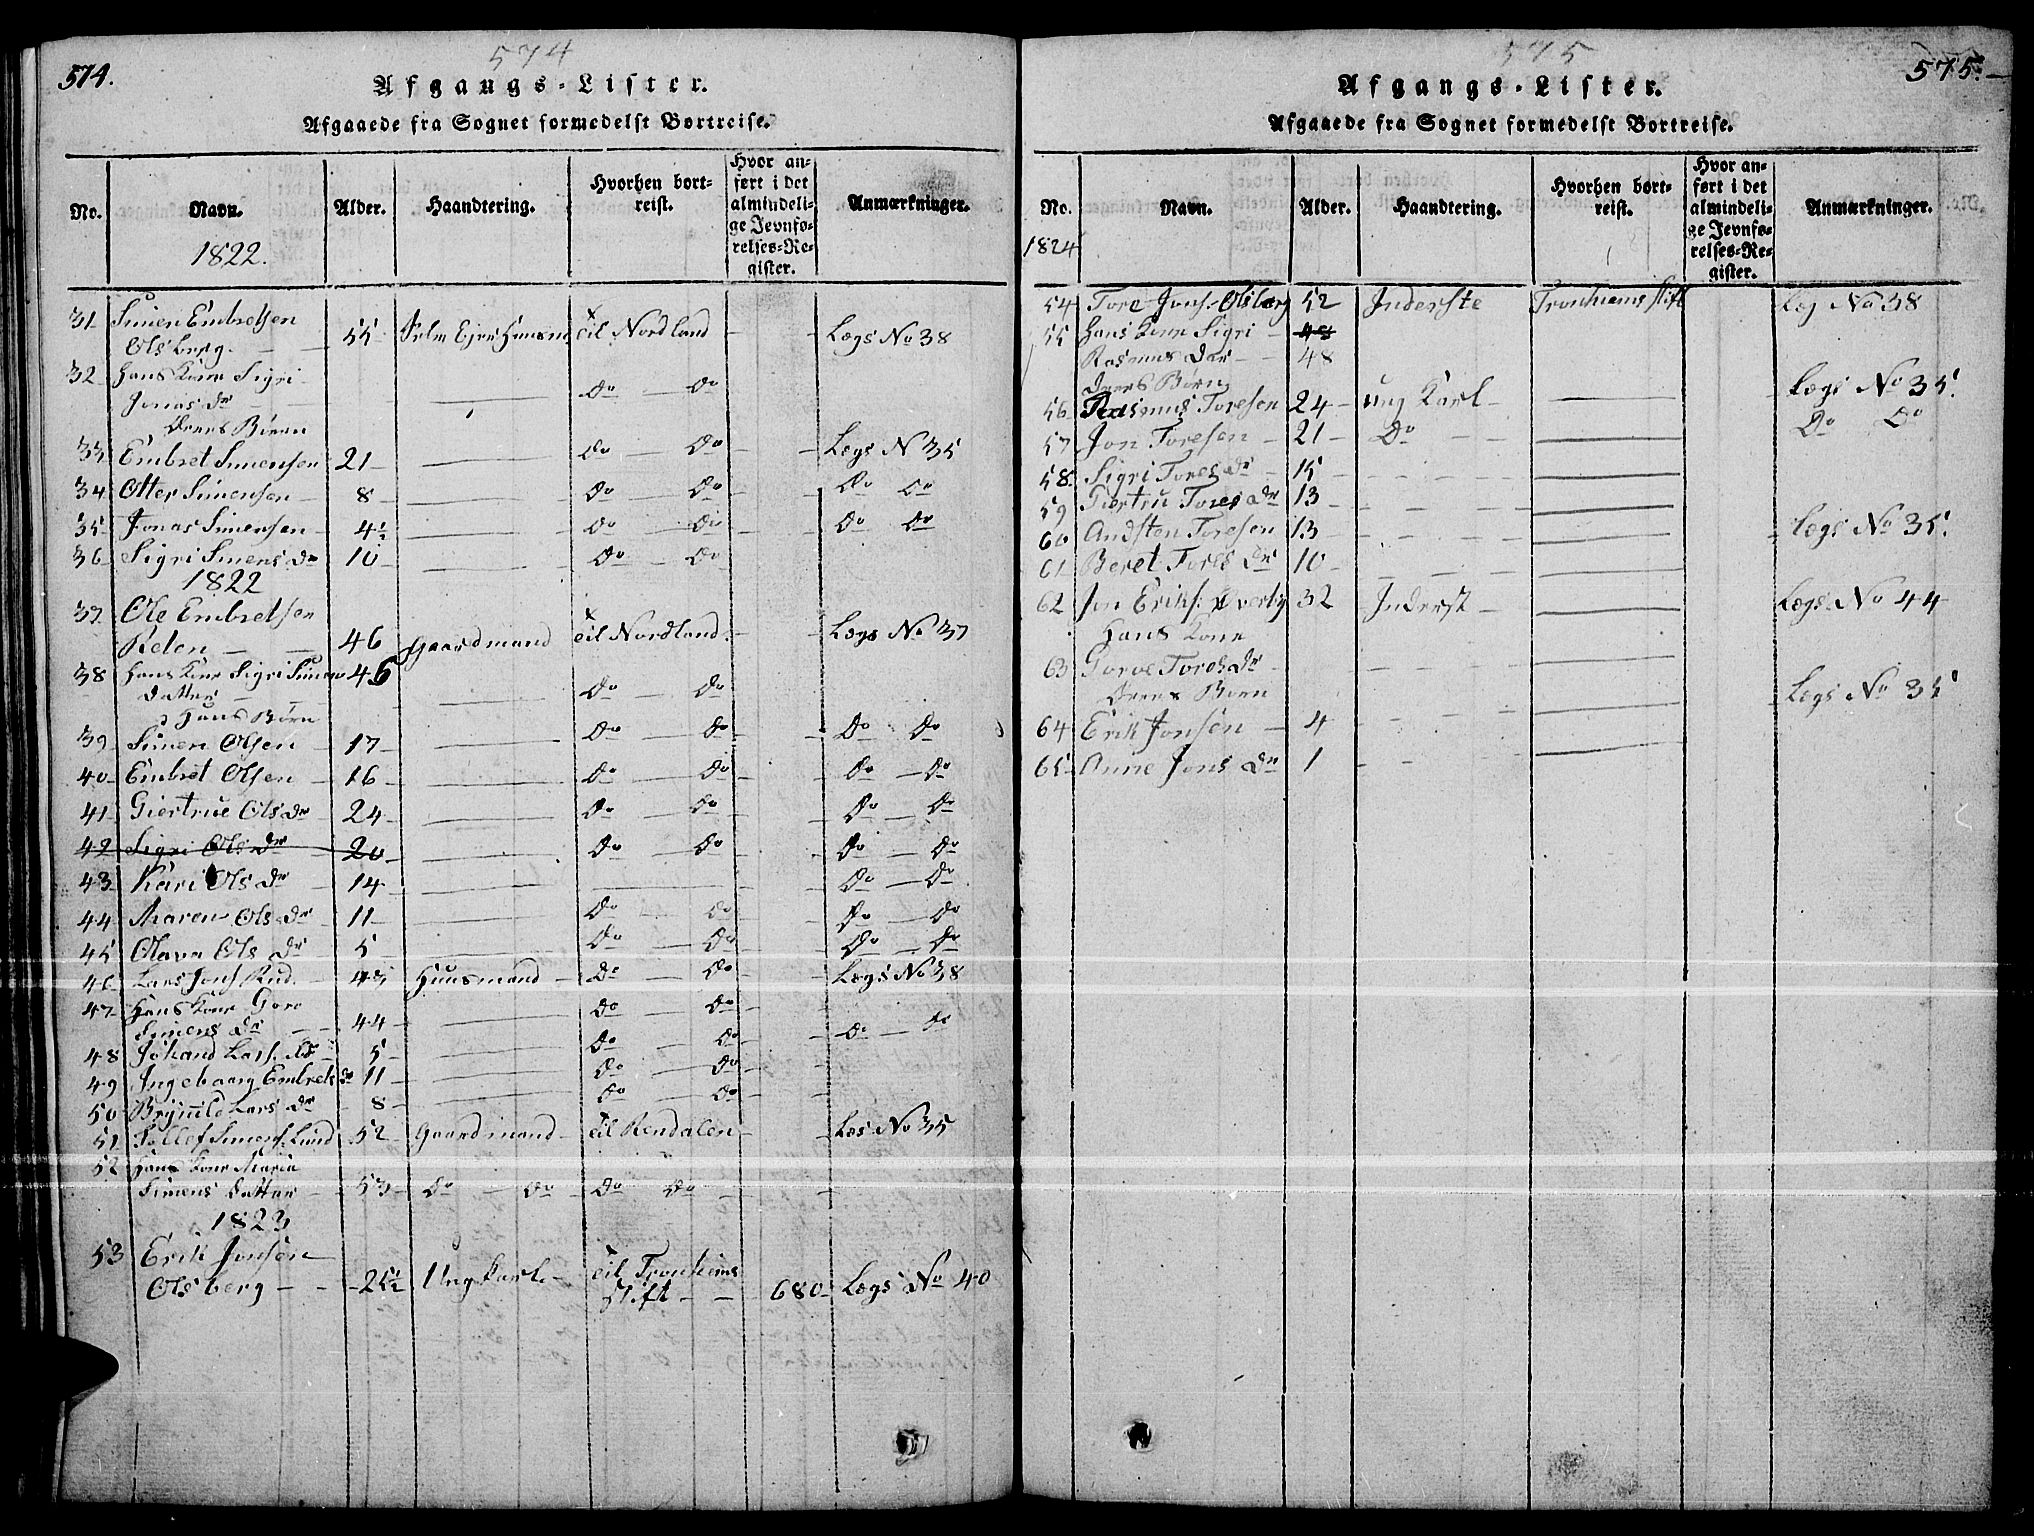 574
574.
Afgangs-Lister.
Afgaaede fra Sognet formedelst Bortreise.
No. Navn. Alder. Haandtering. Hvorhen bortreist. Hvor anført i det almindelige Jevnførelses-Register. Anmærkninger.
1822.
31 Simen Embretsen
Olsberg 55 Huusm til Nordland Lægs No 38
32 Hans Kone Sigri
Jonas Dr Do Do
Deres Børn
33 Embret Simensen 21 Do Do Lægs N 35
34 Otter Simensen 8 Do Do Do Do
35 Jonas Simensen 4½ Do Do Do Do
36 Sigri Simens Dr 10 Do Do
1822
37 Ole Embretsen
Relen 46 Gaardmand til Nordland Lægs No 37
38 Hans Kone Sigri Simens 46
Datter Do Do
Hans Børn
39 Simen Olsen 17 Do Do Do Do
40 Embret Olsen 16 Do Do Do Do
41 Giertrue Ols Dr 24 Do Do Do Do
42 Sigri Ols Dr 20 Do Do Do Do
43 Kari Ols Dr 14 Do Do
44 Maren Ols Dr 11 Do Do Do Do
45 Olava Ols Dr 5 Do Do Do Do
46 Lars Jons Rud 43 Huusmand Do Do Lægs No 38
47 Hans Kone Goro
Simens Dr 44 Do Do Do Do
48 Johand Lars. 5 Do Do
49 Ingebaarg Embrets Dr 11 Do Do
50 Brynild Lars Dr 8 Do Do
51 Tollef Simens. Lund 52 Gaardmand til Rendalen Læs No 35
52 Hans Kone Maria
Simens Datter 53 Do Do Do Do
1823
53 Erik Jonsen
Olsberg 25½ Ungkarl til Tronhiems
Stift 680 Lægs No 40
575
575.
Afgangs-Lister.
Afgaaede fra Sognet formedelst Bortreise.
No. Navn. Alder. Haandtering. Hvorhen bortreist. Hvor anført i det almindelige Jevnførelses-Register. Anmærkninger.
1824
54 Tore Jons. Olsberg 52 Inderste Tronhiems Stift Læg No 38
55 Hans Kone Sigri 48
Rasmus Dor 48
Deres Børn
56 Rasmus Toresen 24 ung Karl Lægs No 35
57 Jon Toresen 21 Do Do Do
58 Sigri Tores Dr 15
59 Giertru Tores Dr 13
60 Andsten Toresen 13 Lægs No 35
61 Beret Tores Dr 10
62 Jon Eriks: Øverby 32 Inderst Lægs No 44
Hans Kone
63 Goroe Tores Dr
Deres Børn Lægs No 35
64 Erik Jonsen 4
65 Anne Jons Dr 1